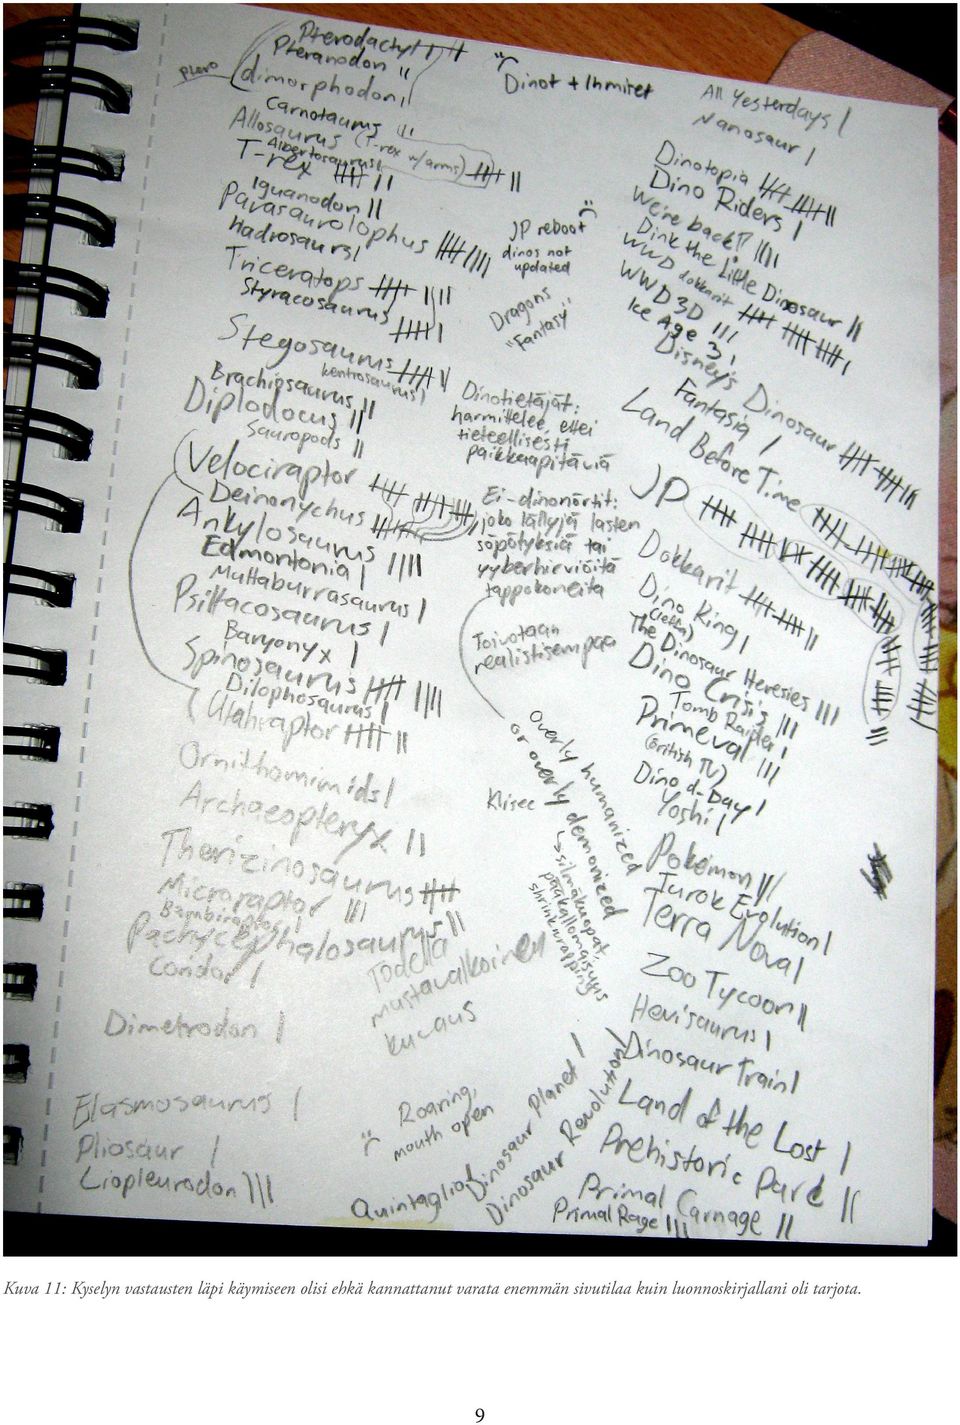 Pterodactyl
Pteranodon
ptero
dimorphodon
Carnotaurus
Allosaurus (T-rex w/arms)
Albertosaurus
T-rex
Iguanodon
Parasaurolophus
Hadrosaurs
Triceratops
Styracosaurus
Stegosaurus
kentrosaurus
Brachiosaurus
Diplodocus
Sauropods
Velociraptor
Deinonychus
Ankylosaurus
Edmontonia
Muttaburrasaurus
Psittacosaurus
Baryonyx
Spinosaurus
Dilophosaurus
Utahraptor
Ornithomimids
Archaeopteryx
Therizinosaurus
Microraptor
Bambiraptor
Pachycephalosaurus
Condor
Dimetrodon
Elasmosaurus
Pliosaur
Liopleurodon
Dinot + Ihmiset
JP reboot
dinos not
updated
Dragons
"Fantasy"
Dinotietäjät:
harmittelee, ettei
tieteellisesti
paikkaapitäviä
Ei-dinonörtit:
joko tällyjä lasten
söpötyksiä tai
yyberhirviöitä
tappokoneita
Toivotaan
realistisempaa
overly humanized
or overly demonized
Klisee
silmäkuopat,
pääkallomaisuus
shrinkwrapping
Todella
mustavalkoinen
kuvaus
Roaring,
mouth open
Quintaglio
Dinosaur Planet
Dinosaur Revolution
All Yesterdays
Nanosaur
Dinotopia
Dino Riders
We're back!
Dink the Little Dinosaur
WWD dokkarit
WWD 3D
Ice Age 3
Disney's Dinosaur
Fantasia
Land Before Time
JP
Dokkarit
Dino King
The Dinosaur Heresies
Dino Crisis
Tomb Raider
Primeval
(British TV)
Dino d-Day
Yoshi
Pokémon
Turok Evolution
Terra Nova
Zoo Tycoon
Hevisaurus
Dinosaur Train
Land of the Lost
Prehistoric Park
Primal Carnage
Primal Rage
Kuva 11: Kyselyn vastausten läpi käymiseen olisi ehkä kannattanut varata enemmän sivutilaa kuin luonnoskirjallani oli tarjota.
9